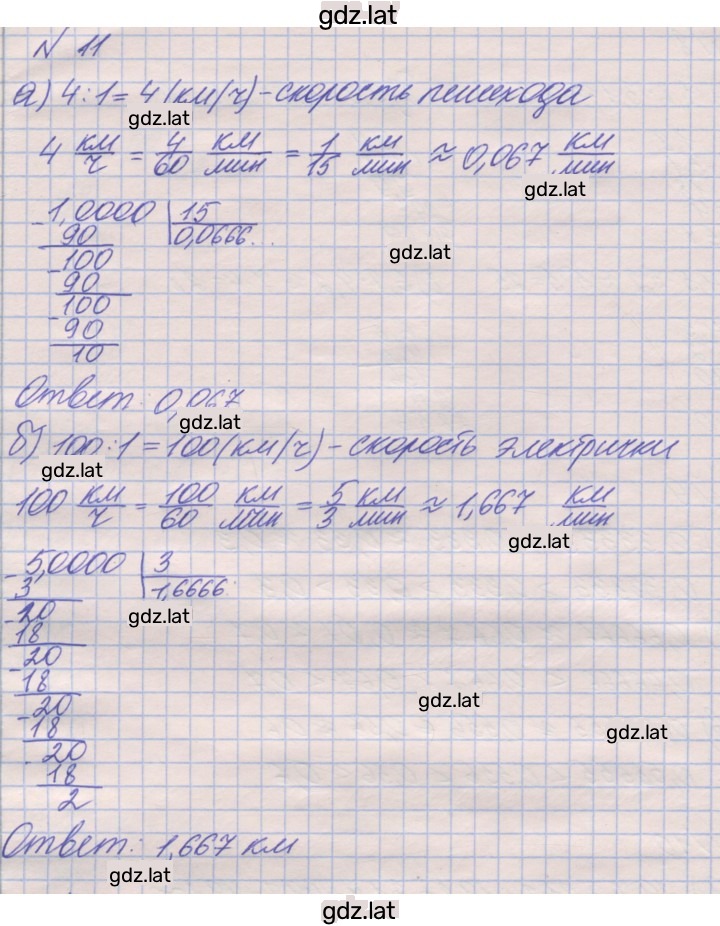 gdz.lat
N 11
а) 4:1=4 (км/ч) - скорость пешехода
gdz.lat
4 км/ч = 4/60 км/мин = 1/15 км/мин ≈ 0,067 км/мин
gdz.lat
- 1,0000 | 15
90 | 0,0666...
gdz.lat
- 100
90
- 100
90
10
Ответ: 0,067
gdz.lat
б) 100:1=100 (км/ч) - скорость электрички
gdz.lat
100 км/ч = 100/60 км/мин = 5/3 км/мин ≈ 1,667 км/мин
gdz.lat
- 5,0000 | 3
3 | 1,6666.
- 20
gdz.lat
18
- 20
18
- 20
gdz.lat
18
gdz.lat
- 20
18
2
Ответ: 1,667 км
gdz.lat
gdz.lat